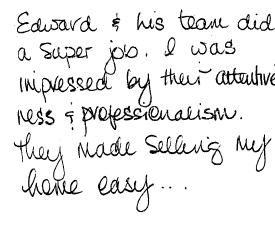 Edward & his team did
a super job. I was
impressed by their attentive
ness & professionalism.
They made selling my
home easy...